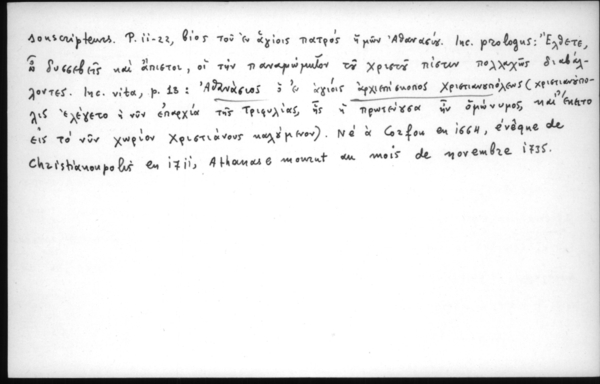 souscripteurs. P. ii-22, βίος τοῦ ἐν ἁγίοις πατρὸς ἡμῶν Ἀθανασίου. Inc. prologus: Ἔλθετε,
ὦ δυσσεβεῖς καὶ ἄπιστοι, οἱ τὴν παναμώμητον τοῦ Χριστοῦ πίστιν πολλαχῶς διαβάλ-
λοντες. Inc. vita, p. 13: Ἀθανάσιος ὁ ἐν ἁγίοις ἀρχιεπίσκοπος Χριστιανουπόλεως (Χριστιανούπο-
λις ἐλέγετο ἡ νῦν ἐπαρχία τῆς Τριφυλίας, ἧς ἡ πρωτεύουσα ἦν ὁμώνυμος, καὶ ἔκειτο
εἰς τὸ νῦν χωρίον Χριστιάνους καλούμενον). Né à Corfou en 1664, évêque de
Christianoupolis en 1711, Athanase mourut au mois de novembre 1735.